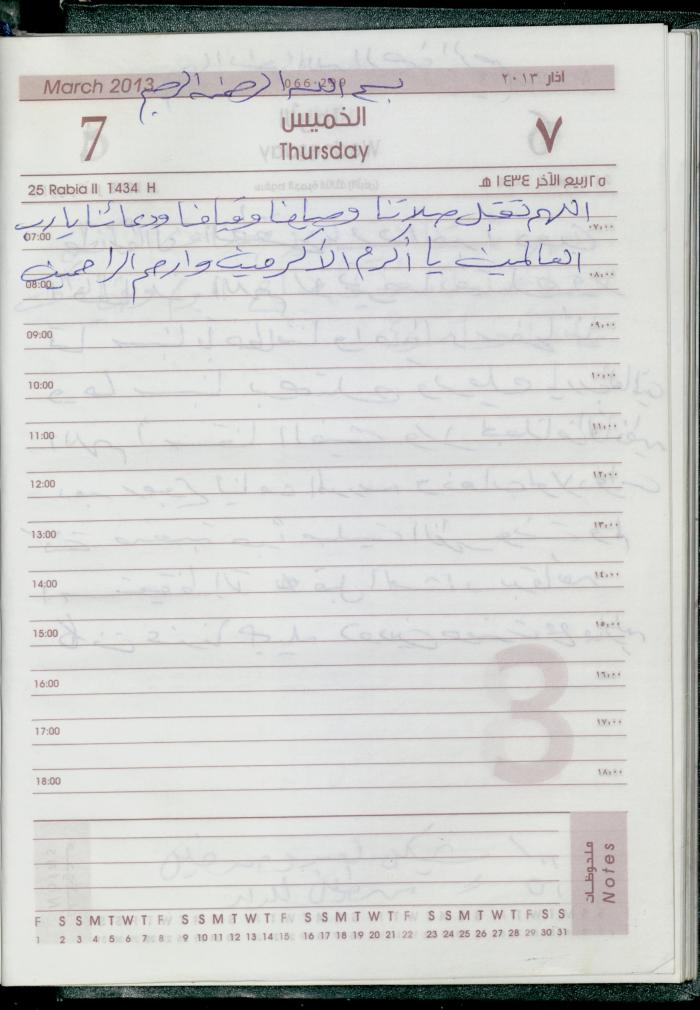 March 2013 066-299 آذار ٢٠١٣
بسم الله الرحمن الرحيم
7 الخميس ٧
Thursday
25 Rabia II 1434 H ٢٥ ربيع الآخر ١٤٣٤ هـ
اللهم تقبل صلاتنا وصيامنا وقيامنا ودعائنا يا رب
07:00 ٠٧,٠٠
العالمين يا أكرم الأكرمين وارحم الراحمين
08:00 ٠٨,٠٠
09:00 ٠٩,٠٠
10:00 ١٠,٠٠
11:00 ١١,٠٠
12:00 ١٢,٠٠
13:00 ١٣,٠٠
14:00 ١٤,٠٠
15:00 ١٥,٠٠
3
16:00 ١٦,٠٠
17:00 ١٧,٠٠
18:00 ١٨,٠٠
ملحوظات
Notes
F S S M T W T F S S M T W T F S S M T W T F S S M T W T F S S
1 2 3 4 5 6 7 8 9 10 11 12 13 14 15 16 17 18 19 20 21 22 23 24 25 26 27 28 29 30 31